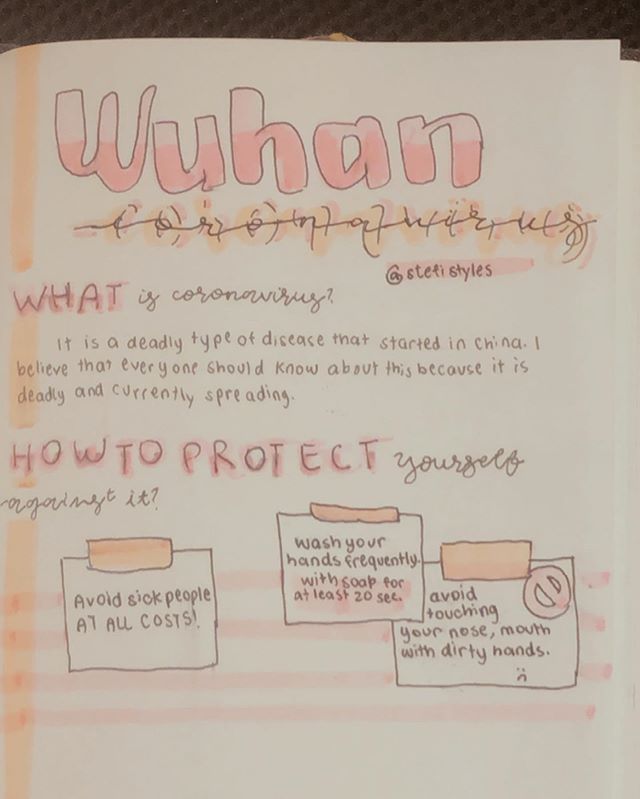 Wuhan
coronavirus
@stefistyles
WHAT is coronavirus?
It is a deadly type of disease that started in China. I
believe that everyone should know about this because it is
deadly and currently spreading.
HOW TO PROTECT yourself
against it?
Avoid sick people
AT ALL COSTS!
wash your
hands frequently.
with soap for
at least 20 sec.
avoid
touching
your nose, mouth
with dirty hands.
:(